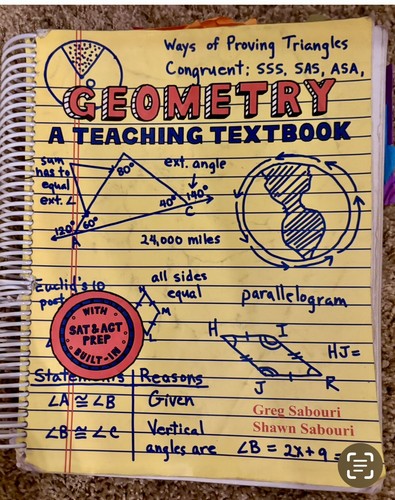 Ways of Proving Triangles
Congruent: SSS, SAS, ASA,
GEOMETRY
A TEACHING TEXTBOOK
sum
has to
equal
ext. ∠
80°
ext. angle
40°
140°
C
120°
60°
A
24,000 miles
Euclid's 10
post
all sides
equal
M
L
parallelogram
WITH
SAT & ACT
PREP
BUILT-IN
H
I
HJ=
J
R
Statements
Reasons
∠A ≅ ∠B
Given
∠B ≅ ∠C
Vertical
angles are
Greg Sabouri
Shawn Sabouri
∠B = 2x+9 =